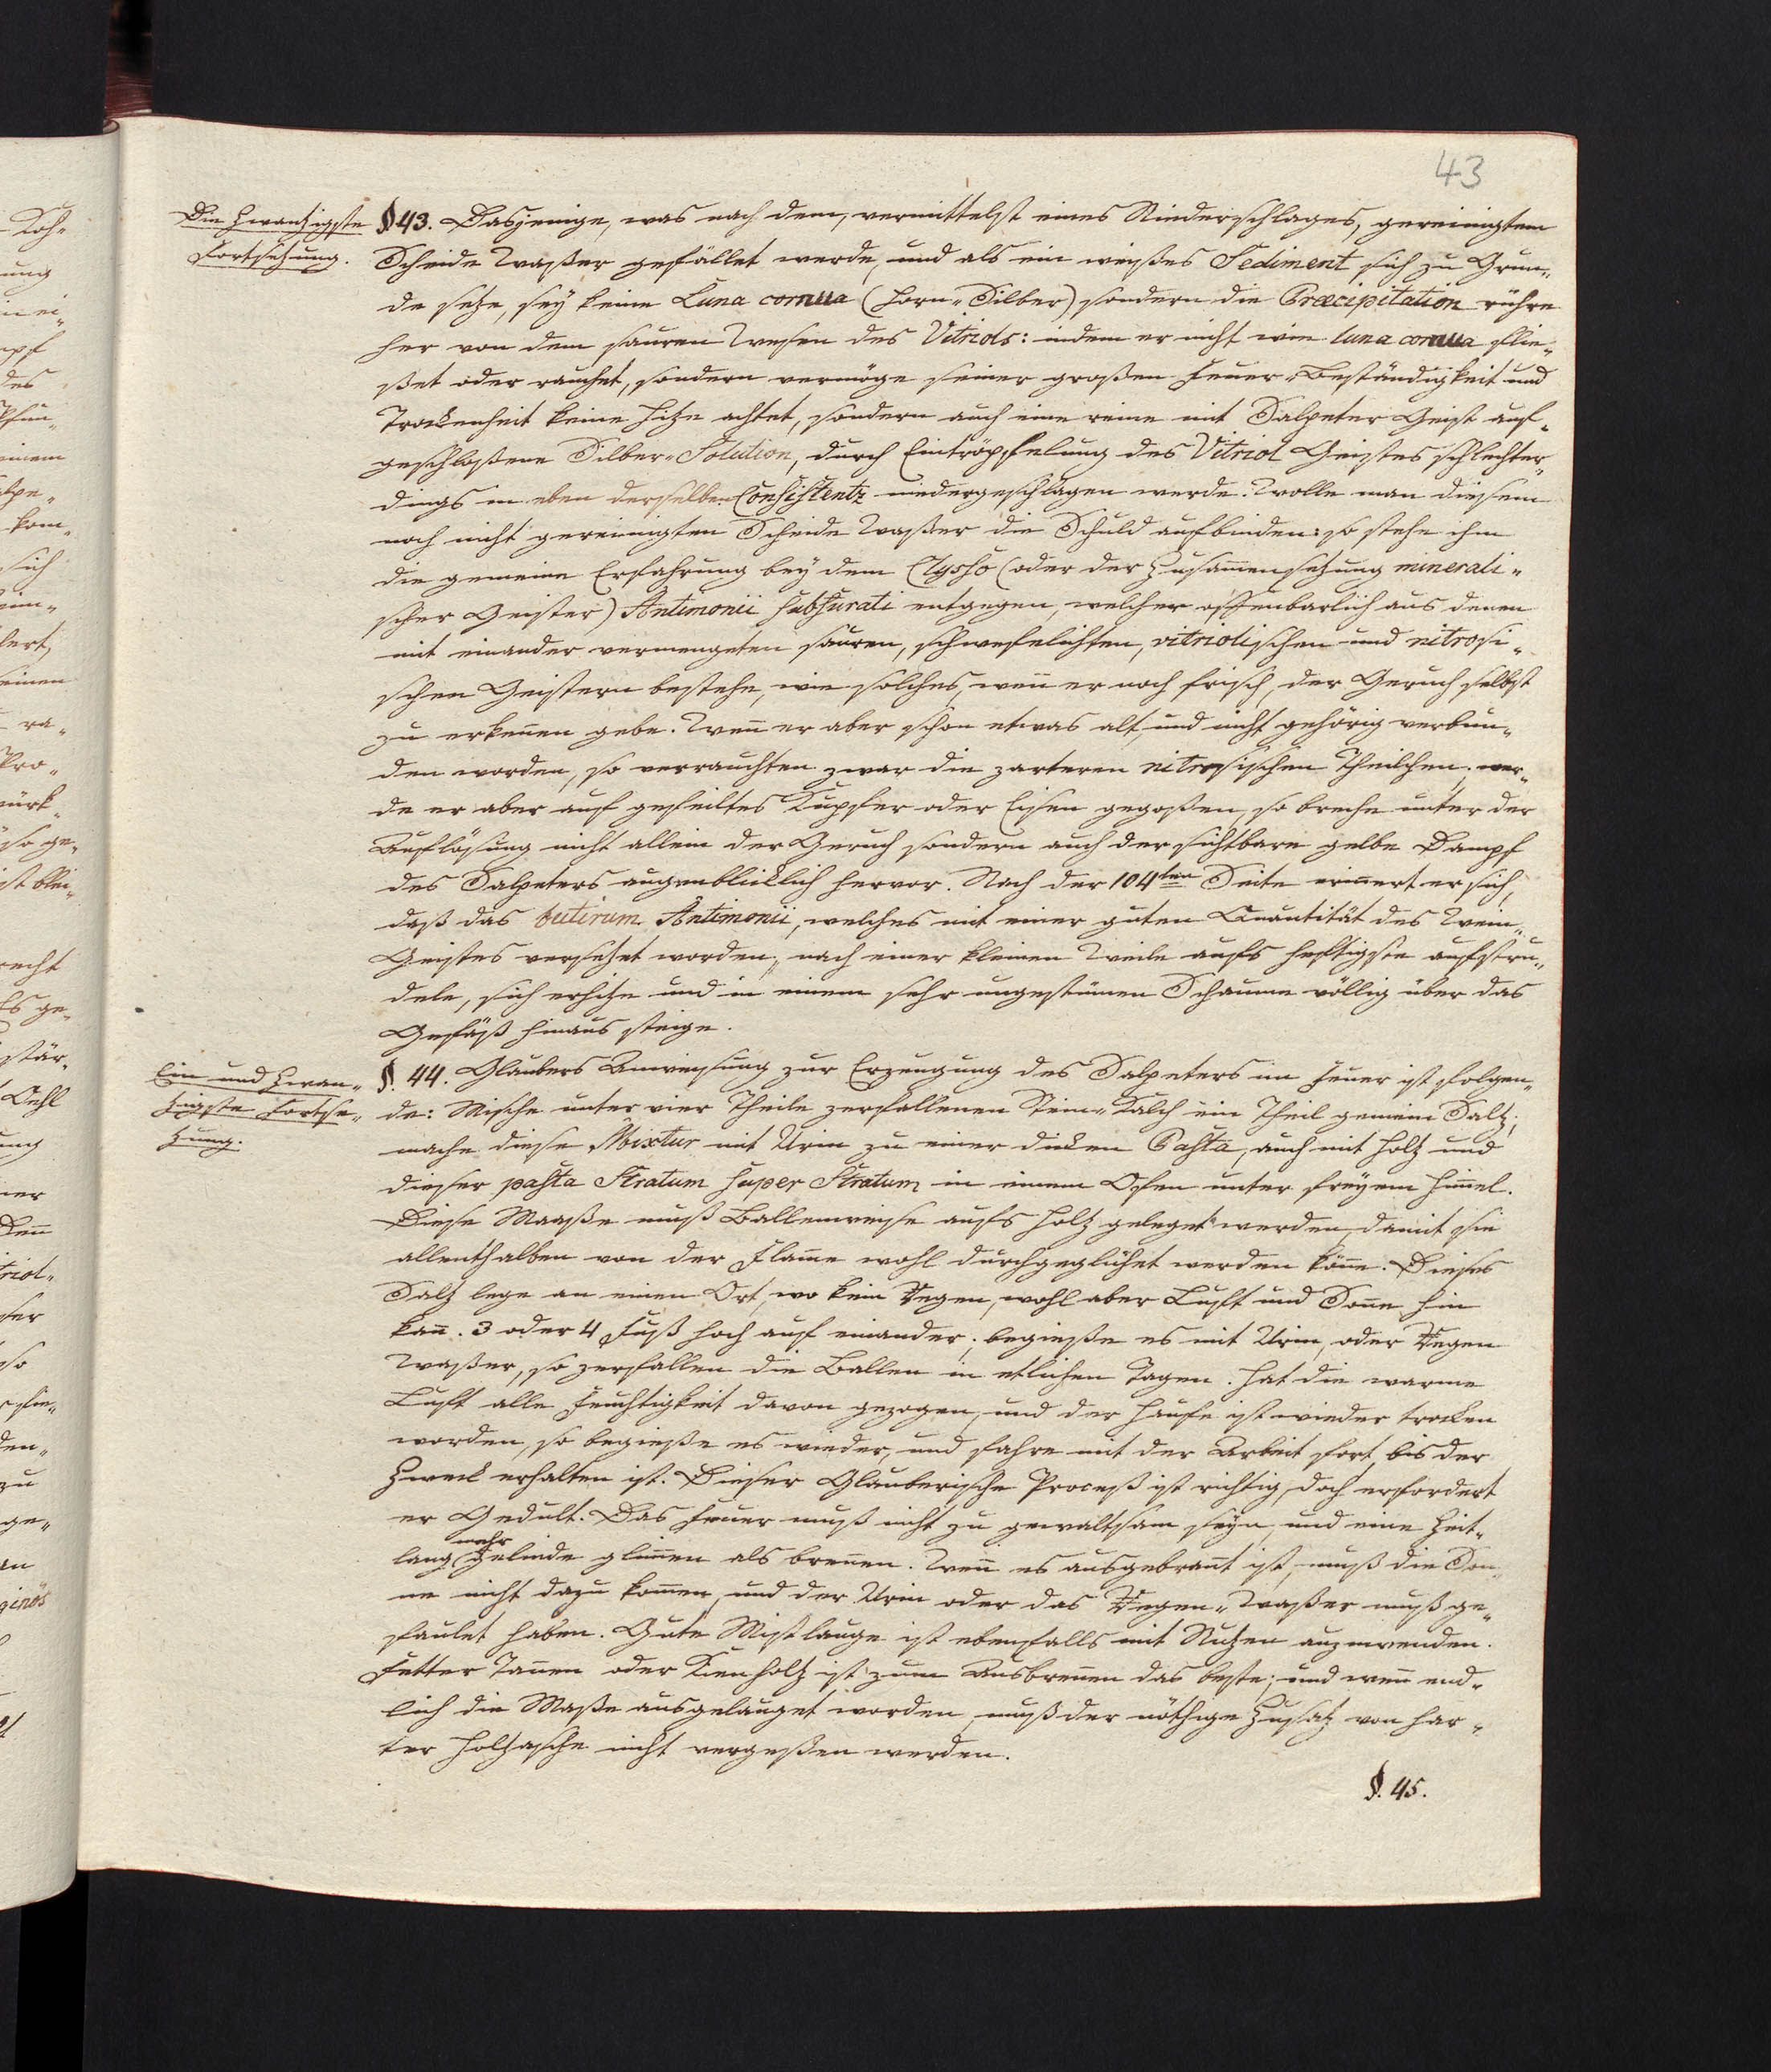 43
Die Zwantzigste
Fortsetzung.
§ 43. Dasjenige, was nach dem, vermittelst eines Niederschlages, gereinigtem
Scheide Waßer gefället werde, und als ein weißes Sediment sich zu Grun„
de setze, sey keine Luna cornua (Horn„Silber) sondern die Præcipitation rühre
her von dem sauren Wesen des Vitriols: indem er nicht wie luna cornua flie„
ßet oder rauchet, sondern vermöge seiner großen Feuer„Beständigkeit und
Trockenheit keine Hitze achtet, sondern auch eine reine mit Salpeter Geist auf„
geschloßene Silber„Solution, durch Eintröpfelung des Vitriol Geistes schlechter„
dings in eben derselben Consistentz niedergeschlagen werde. Wolle man diesem
noch nicht gereinigten Scheide Waßer die Schuld aufbinden: so stehe ihm
die gemeine Erfahrung bey dem Clysso (oder der Zusam̄ensetzung minerali„
scher Geister) Antimonii sulsurati entgegen, welcher offenbarlich aus denen
mit einander vermengeten sauren, schwefelichten, vitriolischen und nitrosi„
schen Geistern bestehe, wie solches, wen̄ er noch frisch, der Geruch selbst
zu erken̄en gebe. Wen̄ er aber schon etwas alt, und nicht gehörig verbun„
den worden, so verrauchten zwar die zarteren nitrosischen Theilchen, wer„
de er aber auf gefeiltes Kupfer oder Eisen gegoßen, so breche unter der
Auflösung nicht allein der Geruch sondern auch der sichtbare gelbe Dampf
des Salpeters augenblicklich hervor. Nach der 104ten Seite erin̄ert er sich,
daß das butirum Antimonii, welches mit einer guten Quantität des Wein„
Geistes versetzet worden, nach einer kleinen Weile aufs heftigste aufstru„
dele, sich erhitze und in einem sehr ungestümen Schaume völlig über das
Gefäß hinaus steige.
Ein und Zwan„
zigste Fortse„
tzung.
§. 44. Glaubers Anweisung zur Erzeugung des Salpeters im Feuer ist folgen„
de: Mische unter vier Theile zerfallenen Stein„Kalch ein Theil gemein Saltz;
mache diese Mixtur mit Urin zu einer dicken Pasta, auch mit Holz und
dieser pasta Stratum super Stratum in einem Ofen unter freyem Him̄el.
Diese Maaße muß Ballenweise aufs Holz geleget werden, damit sie
allenthalben von der Flam̄e wohl durchgeglühet werden kön̄e. Dieses
Saltz lege an einen Ort, wo kein Regen, wohl aber Luft und Son̄e hin
kan̄. 3 oder 4 Fuß hoch auf einander; begieße es mit Urin, oder Regen
Waßer, so zerfallen die Ballen in etlichen Tagen. Hat die warme
Luft alle Feuchtigkeit davon gezogen, und der Haufe ist wieder trocken
worden, so begieße es wieder, und fahre mit der Arbeit fort, bis der
Zweck erhalten ist. Dieser Glauberische Proceß ist richtig, doch erfordert
er Gedult. Das Feuer muß nicht zu gewaltsam seyn, und eine Zeit„
mehr
lang gelinde glim̄en als bren̄en. Wen̄ es ausgebran̄t ist, muß die Son„
ne nicht dazu kom̄en, und der Urin oder das Regen„Waßer muß ge„
faulet haben. Gute Mistlauge ist ebenfalls mit Nutzen anzuwenden.
Fetter Tan̄en oder Kienholtz ist zum Ausbren̄en das beste; und wen̄ end„
lich die Maße ausgelauget worden, muß der nöthige Zusatz von har„
ter Holtzasche nicht vergeßen werden.
§. 45.